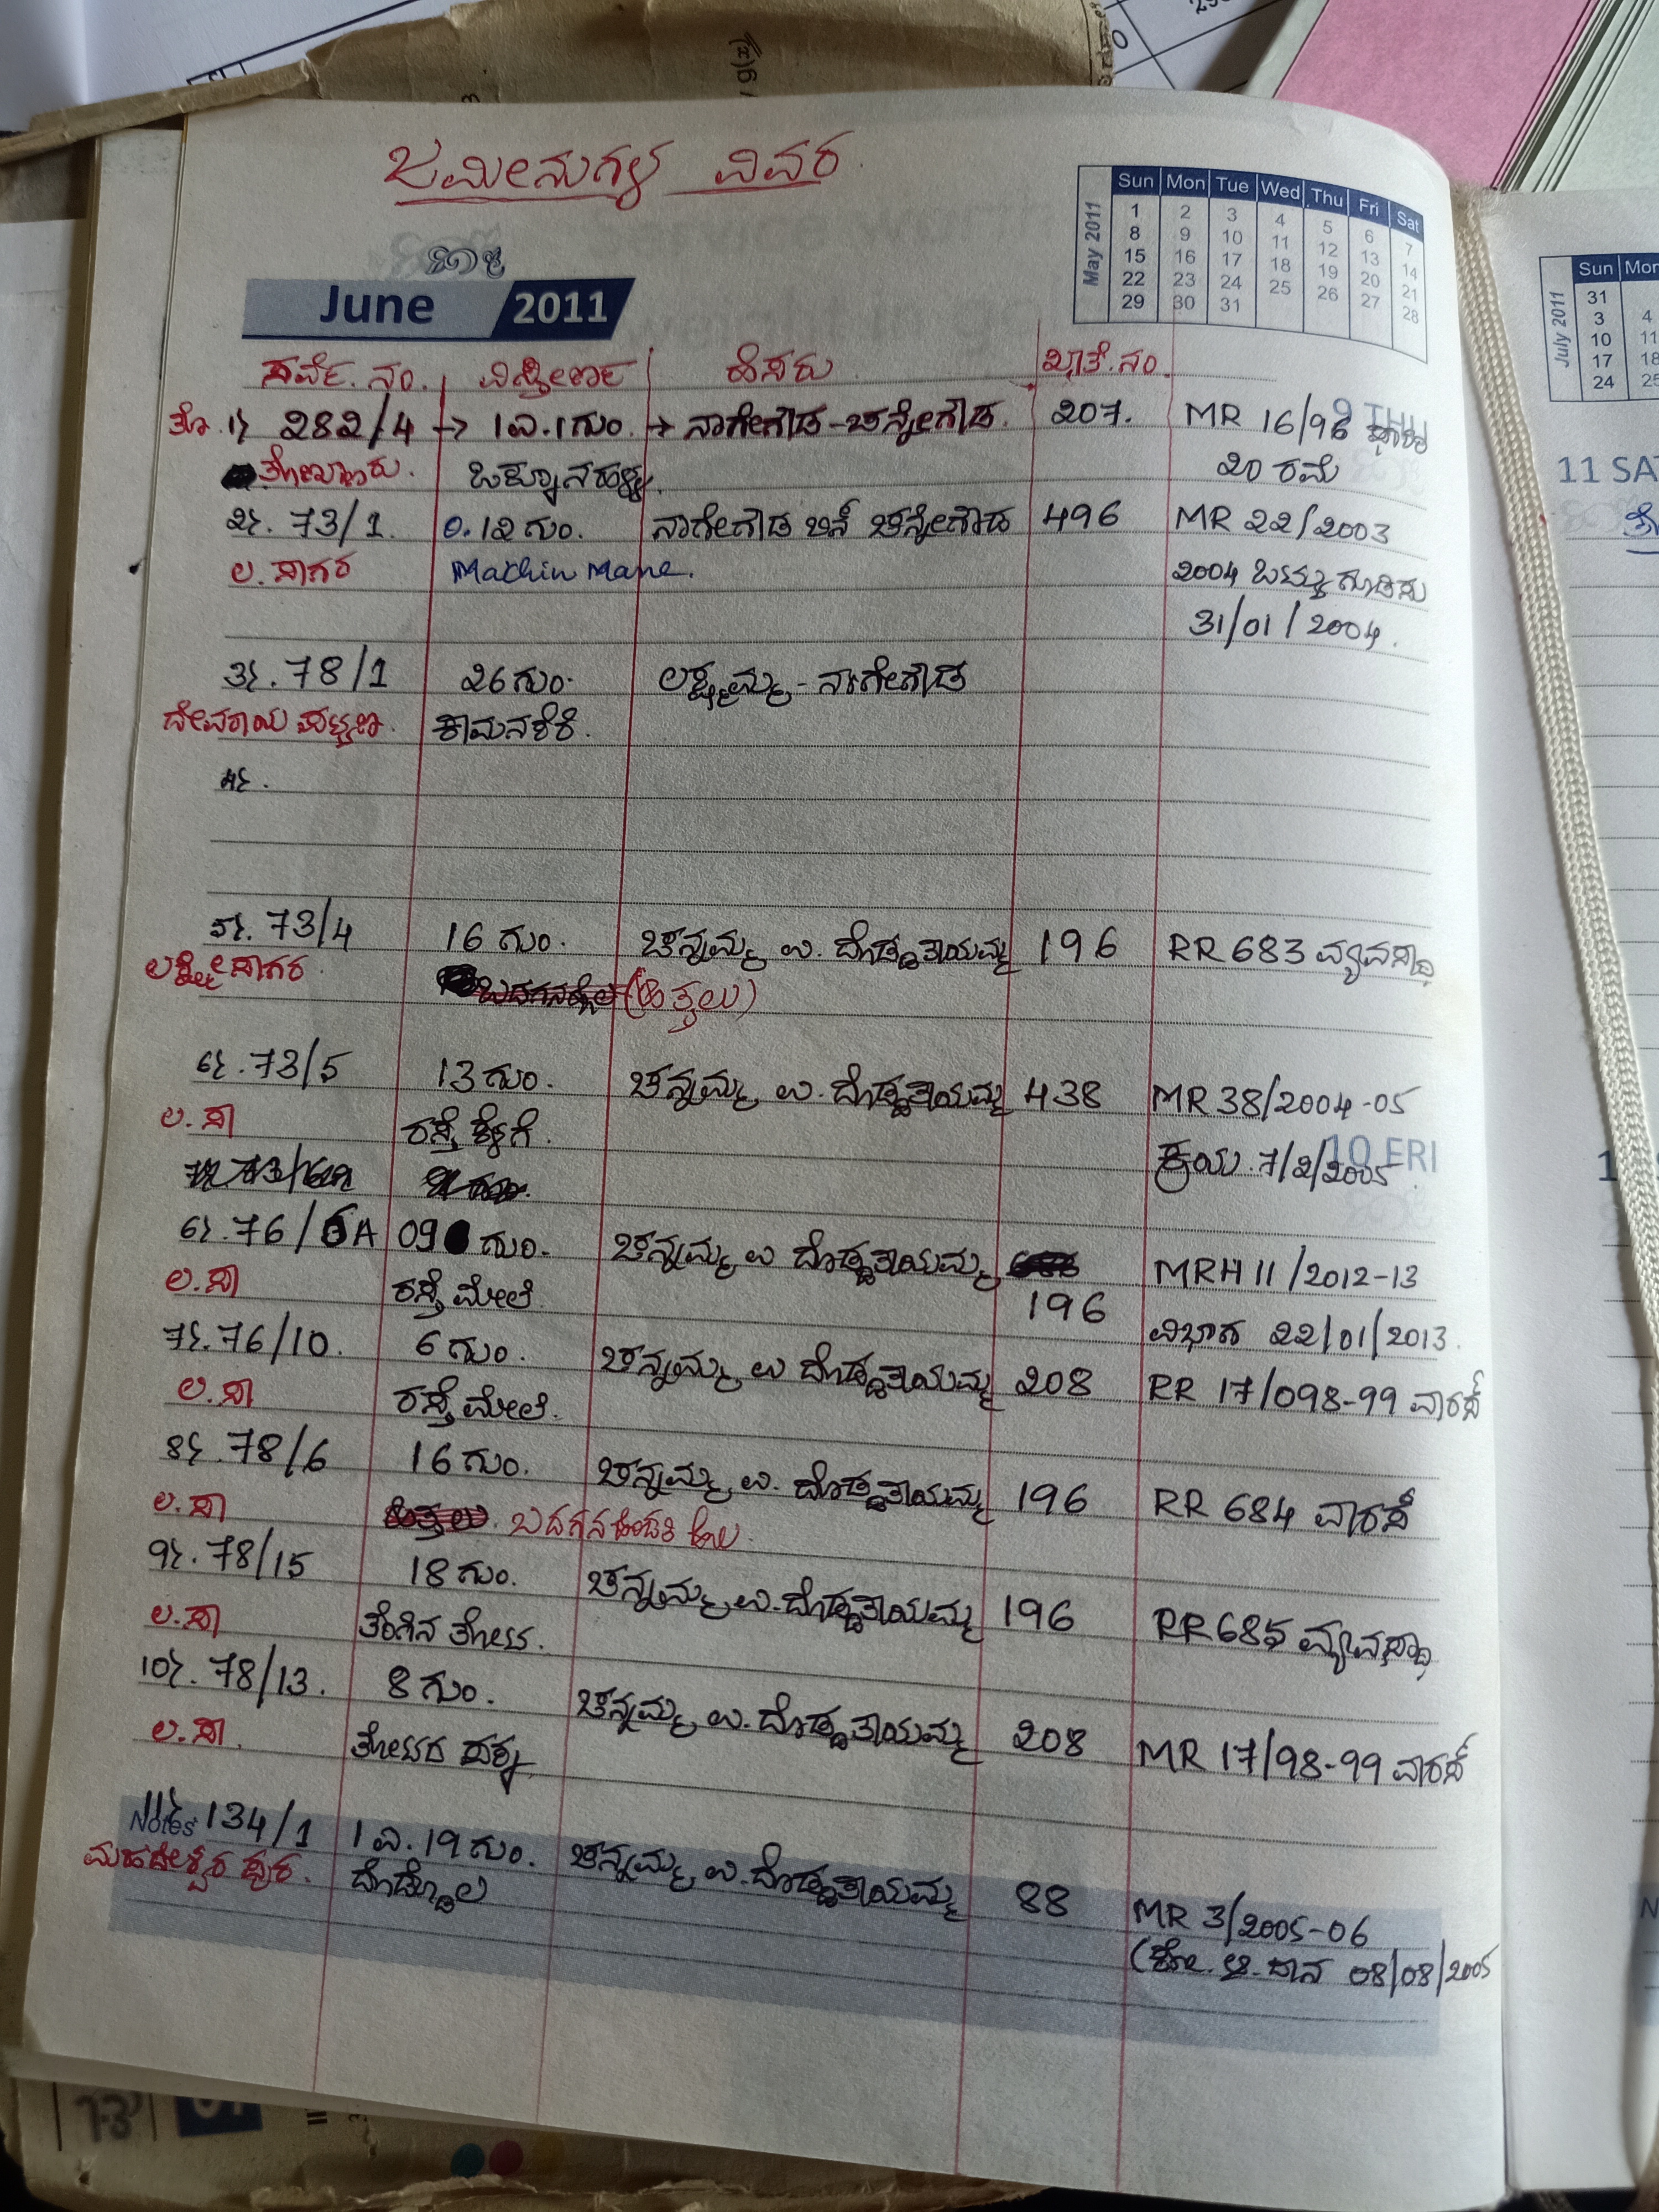 ಜಮೀನುಗಳ ವಿವರ
June 2011
May 2011
Sun Mon Tue Wed Thu Fri Sat
1 2 3 4 5 6 7
8 9 10 11 12 13 14
15 16 17 18 19 20 21
22 23 24 25 26 27 28
29 30 31
ಸರ್ವೆ. ನಂ. ವಿಸ್ತೀರ್ಣ ಹೆಸರು ಖಾತೆ.ನಂ.
ತೊ. ೧) 282/4 → 1ಎ.1ಗುಂ. → ನಾಗೇಗೌಡ-ಚನ್ನೇಗೌಡ. 207. MR 16/96
9 THU
20 ರಮೆ
೨). 73/1. 0.12 ಗುಂ. ನಾಗೇಗೌಡ ಬಿನ್ ಚನ್ನೇಗೌಡ 496 MR 22/2003
ಲ. ಸಾಗರ Machin Mane. 2004 ಒಟ್ಟುಗೂಡಿಸು
31/01/2004.
೩). 78/1 26 ಗುಂ. ಲಕ್ಷ್ಮಮ್ಮ - ನಾಗೇಗೌಡ
ದೇವರಾಯ ಪಟ್ಟಣ. ಕಾಮನಕೆರೆ.
೪).
೫). 73/4 16 ಗುಂ. ಚನ್ನಮ್ಮ ಉ. ದೊಡ್ಡತಾಯಮ್ಮ 196 RR 683 ವ್ಯವಸ್ಥಾ
ಲಕ್ಷ್ಮೀಸಾಗರ. (ಹಿತ್ತಲು)
೬). 73/5 13 ಗುಂ. ಚನ್ನಮ್ಮ ಉ. ದೊಡ್ಡತಾಯಮ್ಮ 438 MR 38/2004-05
ಲ. ಸಾ ರಸ್ತೆ ಕೆಳಗೆ. ಕ್ರಯ. 7/2/2005
10 FRI
6). 76/6A 09 ಗುಂ. ಚನ್ನಮ್ಮ ಉ ದೊಡ್ಡತಾಯಮ್ಮ MRH 11/2012-13
ಲ. ಸಾ ರಸ್ತೆ ಮೇಲೆ 196 ವಿಭಾಗ 22/01/2013.
7). 76/10. 6 ಗುಂ. ಚನ್ನಮ್ಮ ಉ ದೊಡ್ಡತಾಯಮ್ಮ 208 RR 17/098-99 ವಾರಸ್
ಲ. ಸಾ ರಸ್ತೆ ಮೇಲೆ.
8). 78/6 16 ಗುಂ. ಚನ್ನಮ್ಮ ಉ. ದೊಡ್ಡತಾಯಮ್ಮ 196 RR 684 ವಾರಸ್
ಲ. ಸಾ ಹಿತ್ತಲು.
9). 78/15 18 ಗುಂ. ಚನ್ನಮ್ಮ ಉ. ದೊಡ್ಡತಾಯಮ್ಮ 196 RR 685 ವ್ಯವಸ್ಥಾ
ಲ. ಸಾ ತೆಂಗಿನ ತೋಟ.
10). 78/13. 8 ಗುಂ. ಚನ್ನಮ್ಮ ಉ. ದೊಡ್ಡತಾಯಮ್ಮ 208 MR 17/98-99 ವಾರಸ್
ಲ. ಸಾ. ತೋಟದ ಪಕ್ಕ
Notes
11). 134/1 1 ಎ. 19 ಗುಂ. ಚನ್ನಮ್ಮ ಉ. ದೊಡ್ಡತಾಯಮ್ಮ 88 MR 3/2005-06
ಮಹದೇಶ್ವರ ಪುರ. ದೊಡ್ಡೊಲ ದಾನ 08/08/2005
July 2011
Sun Mon
31
3 4
10 11
17 18
24 25